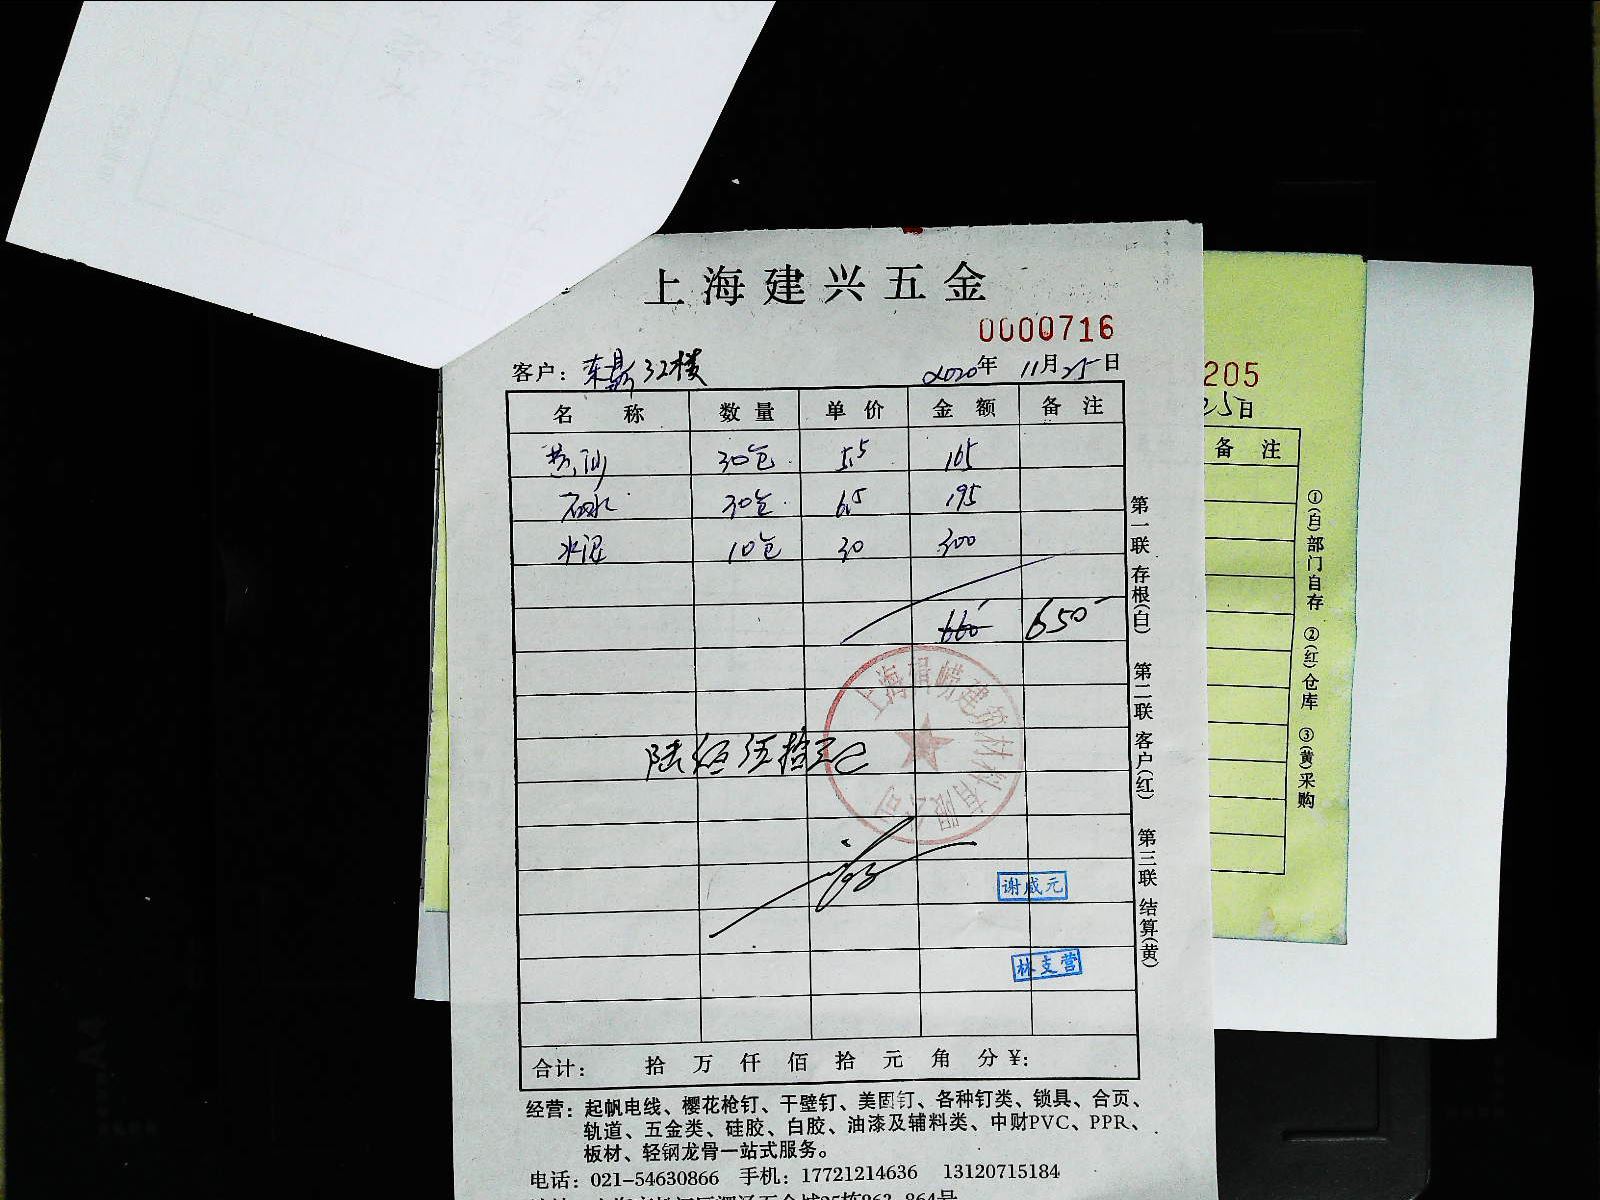 上海建兴五金
0000716
客户：东鼎32楼 2020年 11月25日
名 称 数 量 单 价 金 额 备 注
黄沙 30包 5.5 165
30包 6.5 195
水泥 10包 30 300
660 650
陆佰伍拾元
上海 崂建筑材料有限公司
谢咸元
林支营
合计： 拾 万 仟 佰 拾 元 角 分 ¥:
经营：起帆电线、樱花枪钉、干壁钉、美固钉、各种钉类、锁具、合页、
轨道、五金类、硅胶、白胶、油漆及辅料类、中财PVC、PPR、
板材、轻钢龙骨一站式服务。
电话：021-54630866 手机：17721214636 13120715184
第一联 存根(白) 第二联 客户(红) 第三联 结算(黄)
205
25日
备 注
①(白)部门自存 ②(红)仓库 ③(黄)采购